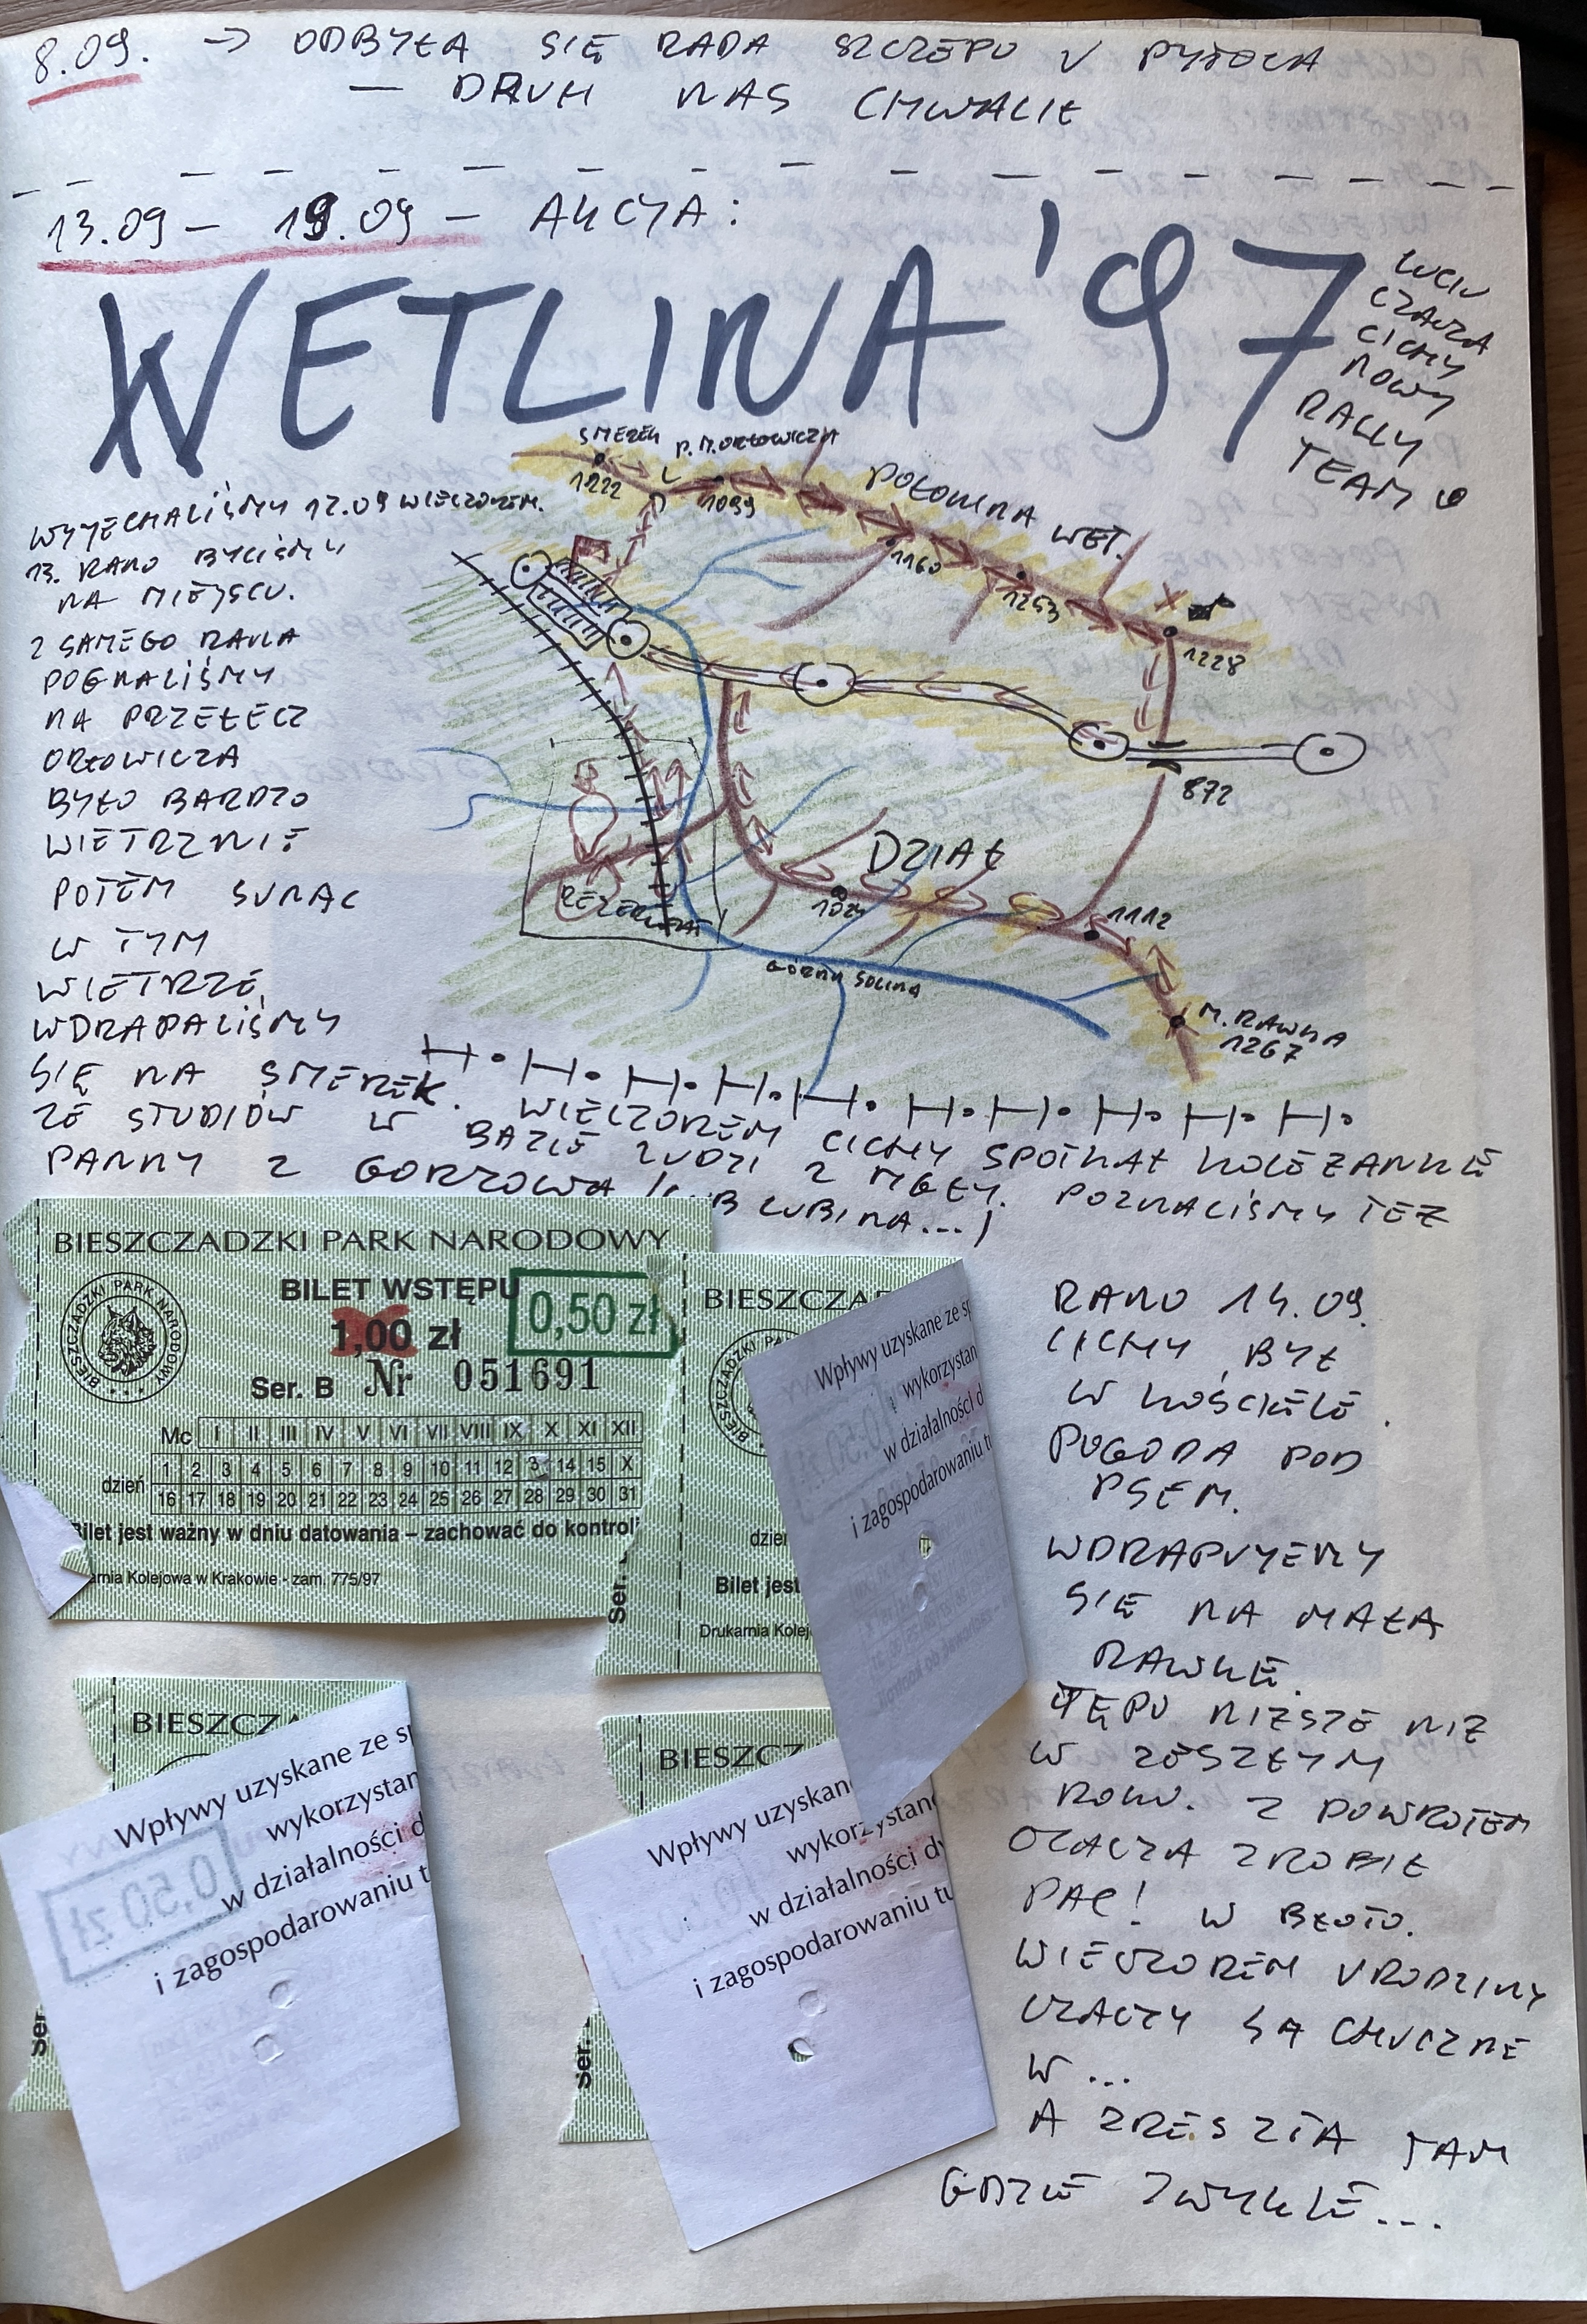 8.09. → ODBYŁA SIĘ RADA SZCZEPU U PYTOLA
— DRUH NAS CHWALIŁ
13.09 – 19.09 – AKCJA:
WETLINA '97
LUCIU
CZACZA
CICHY
NOWY
RALLY
TEAM
WYJECHALIŚMY 12.09 WIECZOREM.
13. RANO BYLIŚMY
NA MIEJSCU.
Z SAMEGO RANA
POGNALIŚMY
NA PRZEŁĘCZ
ORŁOWICZA
BYŁO BARDZO
WIETRZNIE
POTEM SUNĄC
W TYM
WIETRZE,
WDRAPALIŚMY
SIĘ NA SMEREK. WIECZOREM CICHY SPOTKAŁ KOLEŻANKĘ
ZE STUDIÓW W BAZIE LUDZI Z MGŁY. POZNALIŚMY TEŻ
PANNY Z GORZOWA (LUB LUBINA...)
SMEREK
1222
P. M. ORŁOWICZA
1099
POŁONINA WET.
1160
1253
1228
872
DZIAŁ
REZERWAT
1024
1112
GÓRNA SOLINA
M. RAWKA
1267
BIESZCZADZKI PARK NARODOWY
BIESZCZADZKI PARK NARODOWY
BILET WSTĘPU
1,00 zł
0,50 zł
Ser. B Nr 051691
Mc I II III IV V VI VII VIII IX X XI XII
dzień
1 2 3 4 5 6 7 8 9 10 11 12 3 14 15 X
16 17 18 19 20 21 22 23 24 25 26 27 28 29 30 31
Bilet jest ważny w dniu datowania – zachować do kontrol
arnia Kolejowa w Krakowie - zam. 775/97
Ser.
BIESZCZA
dzień
Bilet jest
Drukarnia Kolej
Wpływy uzyskane ze sp
wykorzystan
w działalności d
i zagospodarowaniu t
BIESZCZA
Wpływy uzyskane ze sp
wykorzystan
w działalności d
i zagospodarowaniu t
0,50 zł
Ser.
BIESZCZ
Wpływy uzyskan
wykorzystane
w działalności dy
i zagospodarowaniu tu
Ser.
RANO 14.09.
CICHY BYŁ
W KOŚCIELE.
POGODA POD
PSEM.
WDRAPUJEMY
SIĘ NA MAŁĄ
RAWKĘ.
TĘPO NIŻSZE NIŻ
W ZESZŁYM
ROKU. Z POWROTEM
CZACZA ZROBIŁ
PAC! W BŁOTO.
WIECZOREM URODZINY
CZACZY SĄ HUCZNE
W...
A ZRESZTĄ TAM
GDZIE ZWYKLE...